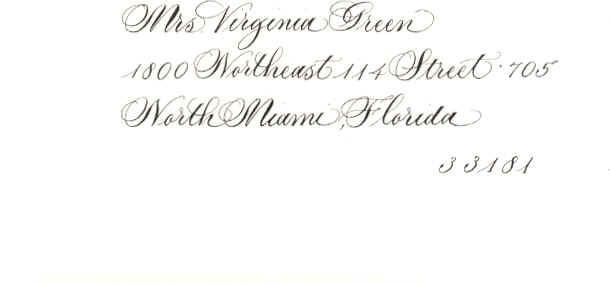 Mrs Virginia Green
1800 Northeast 114 Street · 705
North Miami, Florida
33181